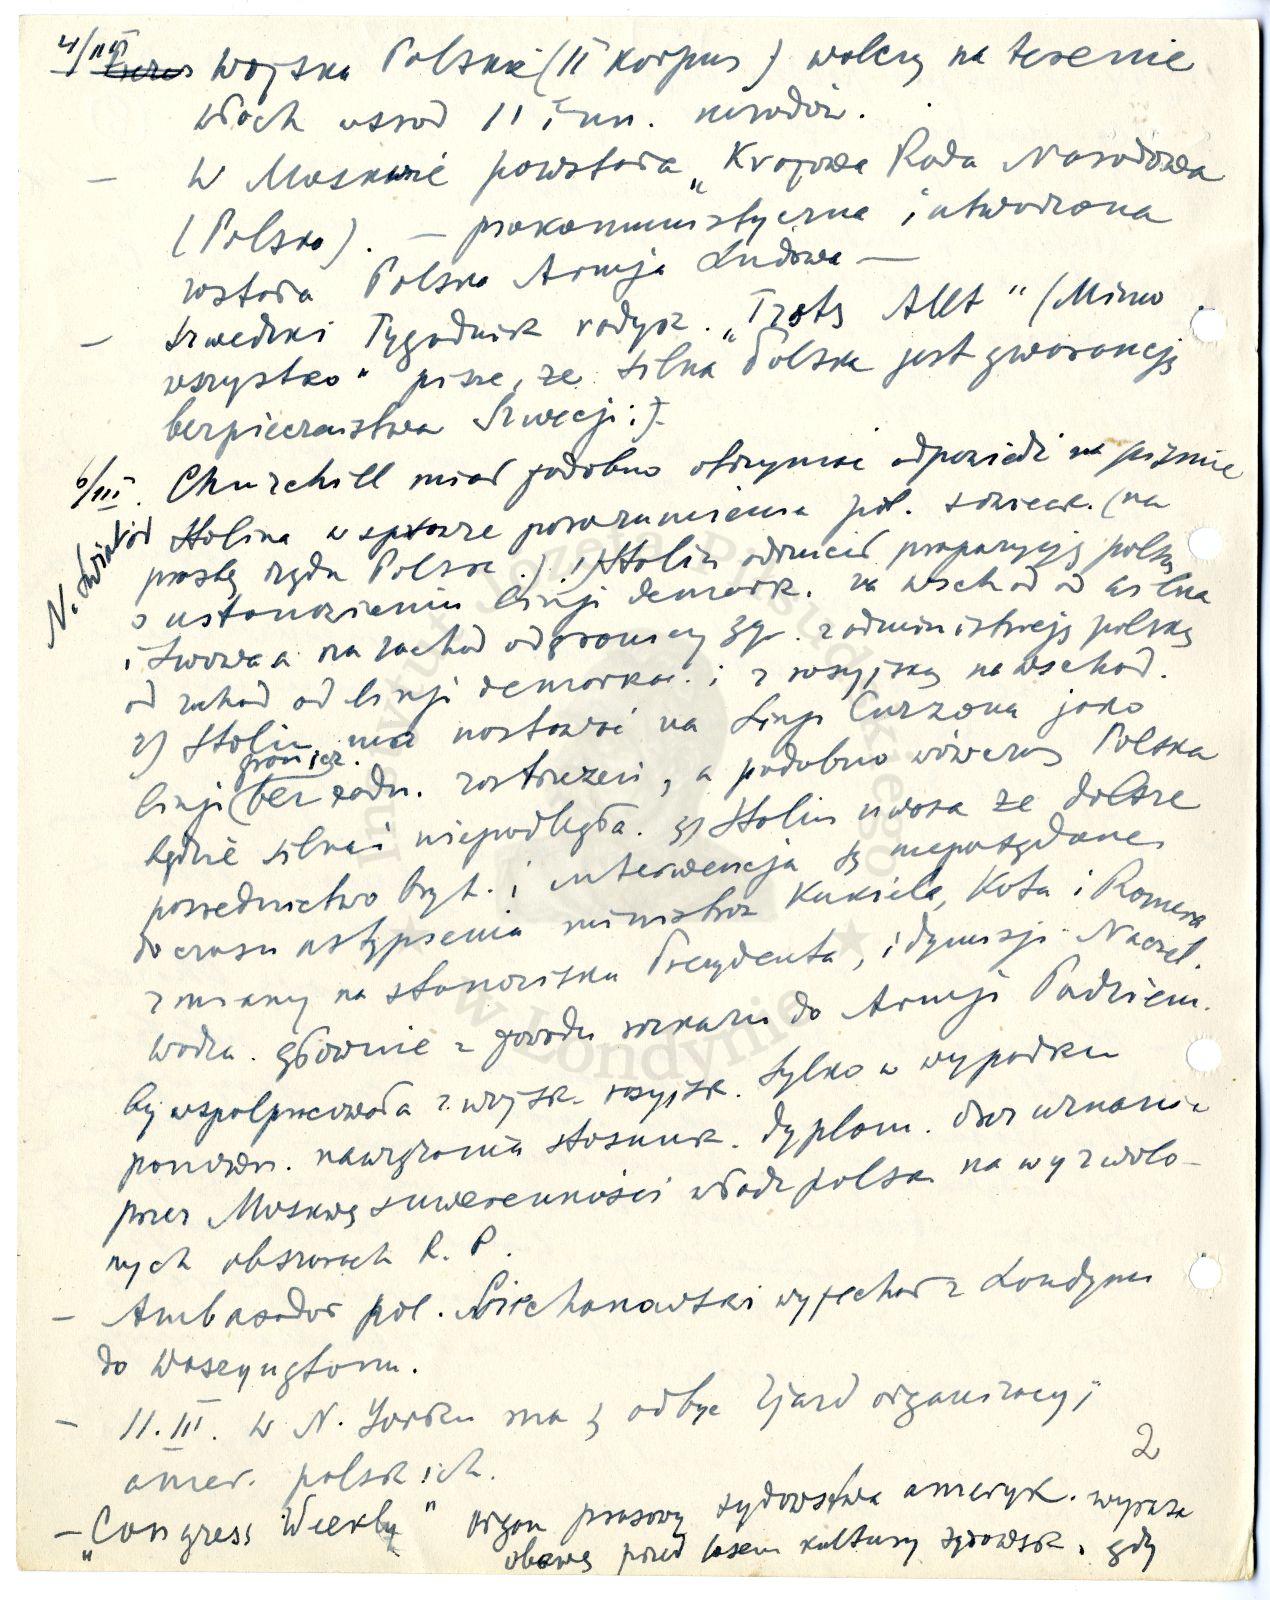 4/III Wojska Polskie (II Korpus) walczy na terenie
Włoch wsrod 11 inn. narodów.
— W Moskwie powstała „Krajowa Rada Narodowa
(Polska). — prokomunistyczna i utworzona
została Polska Armja Ludowa —
— Szwedzki Tygodnik radyk. „Trots Allt" (Mimo
wszystko" pisze, że silna Polska jest gwarancją
bezpieczenstwa Szwecji :).
6/III. Churchill miał podobno otrzymać odpowiedź na pismie
N. Światów
Stalina w sprawie porozumienia pol. sowieck. (na
prosbę rządu Polsk.). 1) Stalin odrzucił propozycję polską
o ustanowieniu linji demark. na wschód od Wilna
i Lwowa a na zachód od granicy 39 r. z administracją polską
od zachod od linji demarkac. i z rosyjską na wschod.
2) Stalin ma nastawać na Linji Curzona jako
linji (granicz. bez żadn. zastrzeżeń, a podobno wówczas Polska
będzie silna i niepodległa. 3) Stalin uważa że dalsze
posrednictwo bryt. i interwencja są niepożądane
do czasu ustąpienia ministrów Kukiela, Kota i Romera
zmiany na stanowisku Prezydenta, i dymisji Naczel.
Wodza. głównie z powodu rozkazu do Armji Podziem.
by wspolpracowała z wojsk. rosyjsk. tylko w wypadku
ponown. nawiązania stosunk. dyplom. oraz uznania
przez Moskwę suwerenności władz polsk. na wyzwolo-
nych obszarach R. P.
— Ambasador pol. Ciechanowski wyjechał z Londynu
do Waszyngtonu.
— 11.III. w N. Yorku ma się odbyć Zjazd organizacyj
amer. polskich.
2
— „Congress Weekly" organ prasowy żydowstwa ameryk. wyraża
obawę przed losem kultury żydowsk. gdy
Instytut Józefa Piłsudskiego
w Londynie